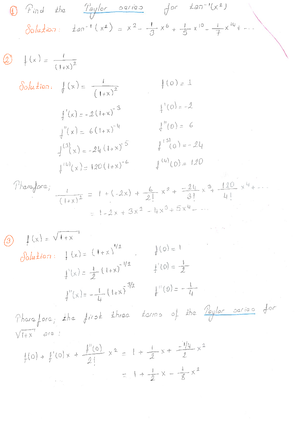 ① Find the Taylor series for tan⁻¹(x²)
Solution: tan⁻¹(x²) = x² - 1/3 x⁶ + 1/5 x¹⁰ - 1/7 x¹⁴ + ...
② f(x) = 1/(1+x)²
Solution: f(x) = 1/(1+x)² f(0) = 1
f'(x) = -2(1+x)⁻³ f'(0) = -2
f''(x) = 6(1+x)⁻⁴ f''(0) = 6
f⁽³⁾(x) = -24(1+x)⁻⁵ f⁽³⁾(0) = -24
f⁽⁴⁾(x) = 120(1+x)⁻⁶ f⁽⁴⁾(0) = 120
Therefore; 1/(1+x)² = 1 + (-2x) + 6/2! x² + -24/3! x³ + 120/4! x⁴ + ...
= 1 - 2x + 3x² - 4x³ + 5x⁴ - ...
③ f(x) = √1+x
Solution: f(x) = (1+x)^1/2 f(0) = 1
f'(x) = 1/2 (1+x)^-1/2 f'(0) = 1/2
f''(x) = -1/4 (1+x)^-3/2 f''(0) = -1/4
Therefore, the first three terms of the Taylor series for
√1+x are:
f(0) + f'(0)x + f''(0)/2! x² = 1 + 1/2 x + -1/4/2 x²
= 1 + 1/2 x - 1/8 x²